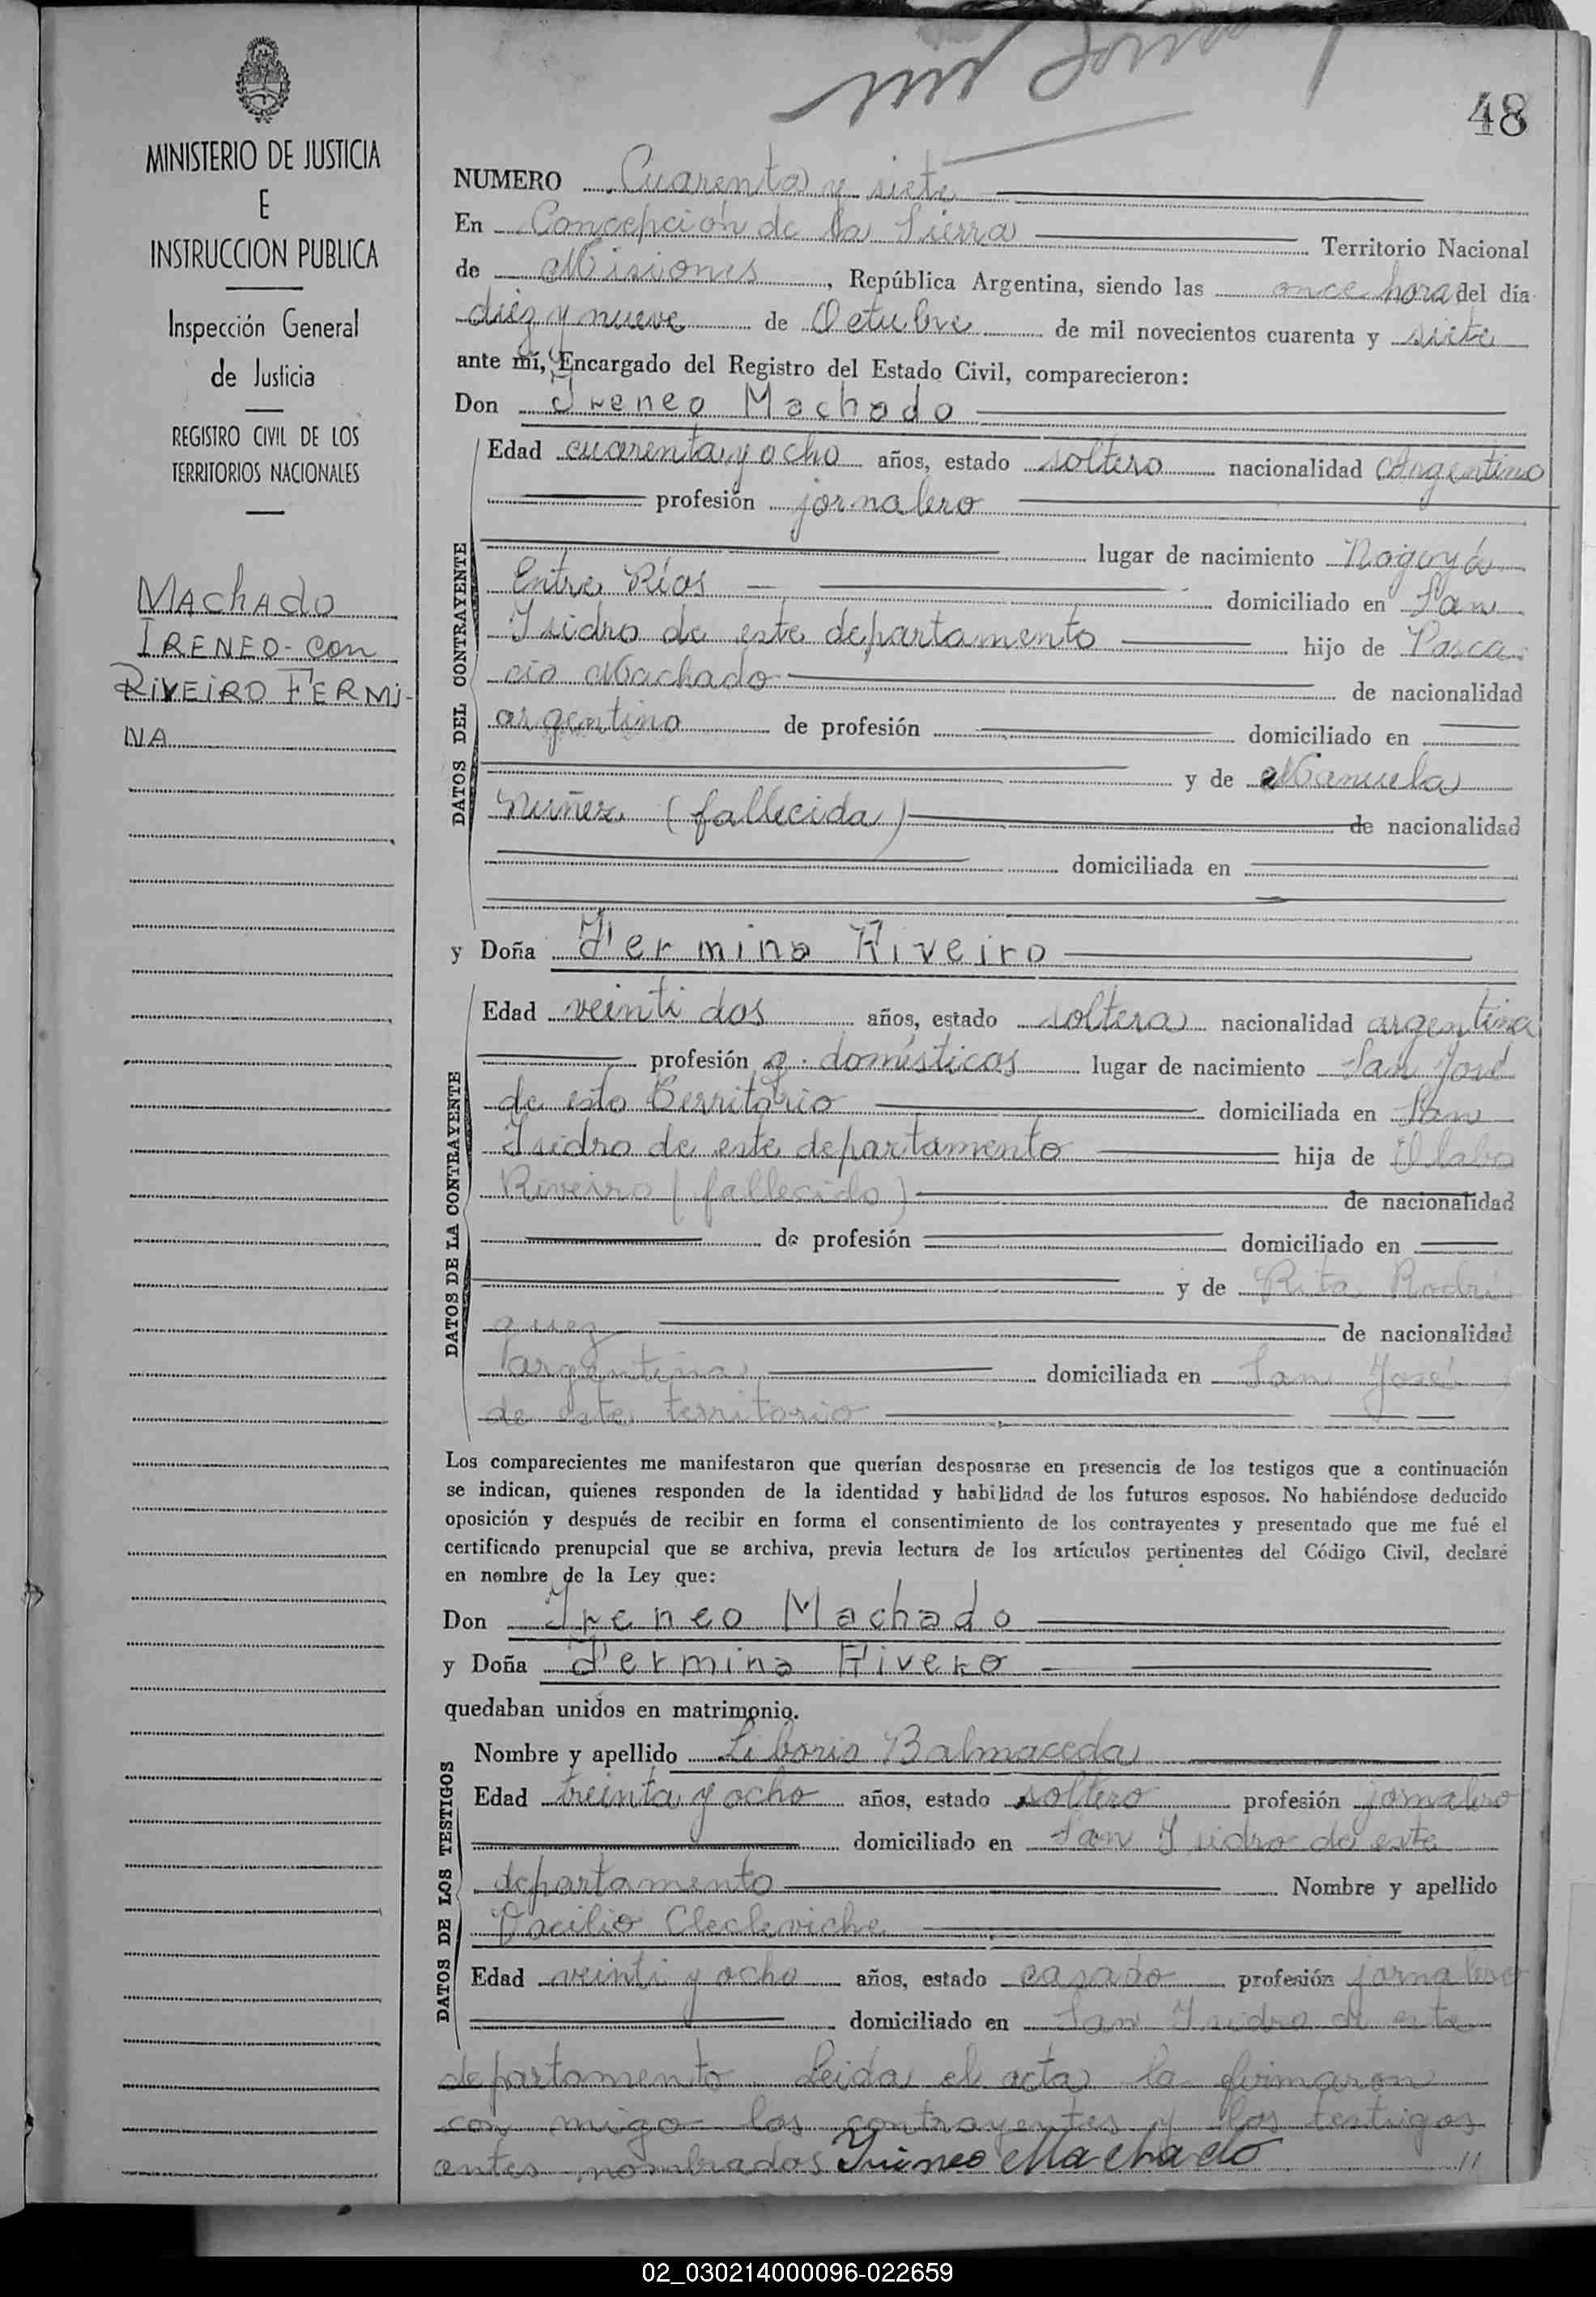 48
MINISTERIO DE JUSTICIA
E
INSTRUCCION PUBLICA
Inspección General
de Justicia
REGISTRO CIVIL DE LOS
TERRITORIOS NACIONALES
MACHADO
IRENEO - con
RIVEIRO FERMI-
NA
NUMERO Cuarenta y siete
En Concepción de la Sierra Territorio Nacional
de Misiones, República Argentina, siendo las once hora del día
diez y nueve de Octubre de mil novecientos cuarenta y siete
ante mí, Encargado del Registro del Estado Civil, comparecieron:
Don Ireneo Machado
DATOS DEL CONTRAYENTE
Edad cuarenta y ocho años, estado soltero nacionalidad Argentino
profesión jornalero
lugar de nacimiento Nogoyá
Entre Ríos domiciliado en San
Isidro de este departamento hijo de Pasca
cio Machado de nacionalidad
argentino de profesión domiciliado en
y de Manuela
Nuñez (fallecida) de nacionalidad
domiciliada en
y Doña Fermina Riveiro
DATOS DE LA CONTRAYENTE
Edad veinti dos años, estado soltera nacionalidad argentina
profesión q. domésticos lugar de nacimiento San José
de esto Territorio domiciliada en San
Isidro de este departamento hija de Olabo
Riveiro (fallecido) de nacionalidad
de profesión domiciliado en
y de Rita Rodri
guez de nacionalidad
argentina domiciliada en San José
de este territorio
Los comparecientes me manifestaron que querían desposarse en presencia de los testigos que a continuación
se indican, quienes responden de la identidad y habilidad de los futuros esposos. No habiéndose deducido
oposición y después de recibir en forma el consentimiento de los contrayentes y presentado que me fué el
certificado prenupcial que se archiva, previa lectura de los artículos pertinentes del Código Civil, declaré
en nombre de la Ley que:
Don Ireneo Machado
y Doña Fermina Rivero
quedaban unidos en matrimonio.
DATOS DE LOS TESTIGOS
Nombre y apellido Liborio Balmaceda
Edad treinta y ocho años, estado soltero profesión jornalero
domiciliado en San Isidro de este
departamento Nombre y apellido
Vacilio
Edad veinti y ocho años, estado casado profesión jornalero
domiciliado en San Isidro de este
departamento Leida el acta la firmaron
con migo los contrayentes y los testigos
antes nombrados Irineo Machado //
02_030214000096-022659